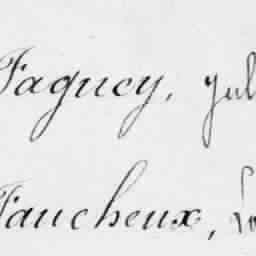 Faguey, Jul
Faucheux, Lo